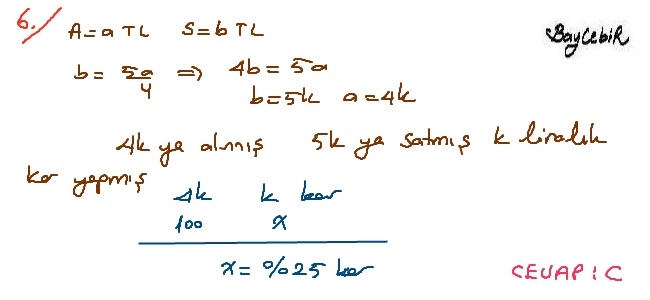 6. A=a TL S=b TL BayCebiR
b = 5a/4 ⇒ 4b = 5a
b=5k a=4k
4k ya almış 5k ya satmış k liralık
kar yapmış
4k k kar
100 x
x = %25 kar
CEVAP : C